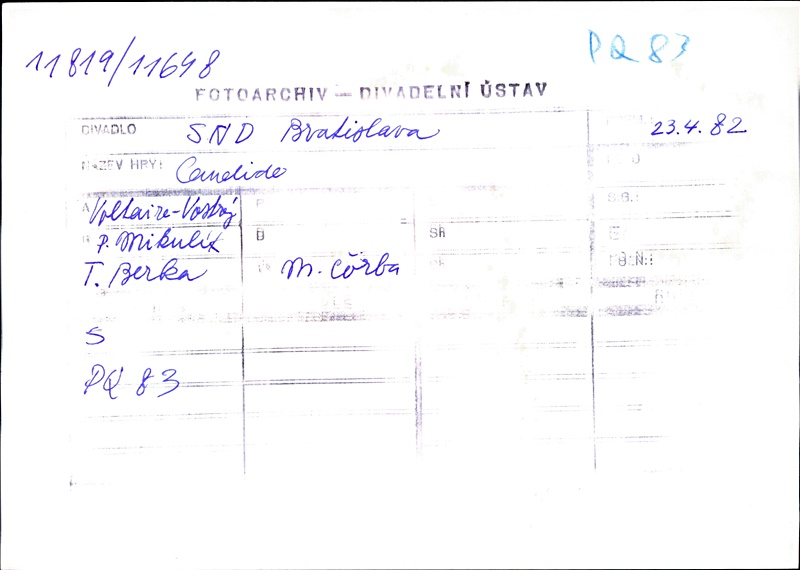 11819/11648
PQ 83
FOTOARCHIV – DIVADELNÍ ÚSTAV
DIVADLO SND Bratislava 23.4.82
NÁZEV HRY: Candide
Voltaire-Vostrý P S.G.:
P. Mikulík D SR E
T. Berka M. Čorba
S
PQ 83